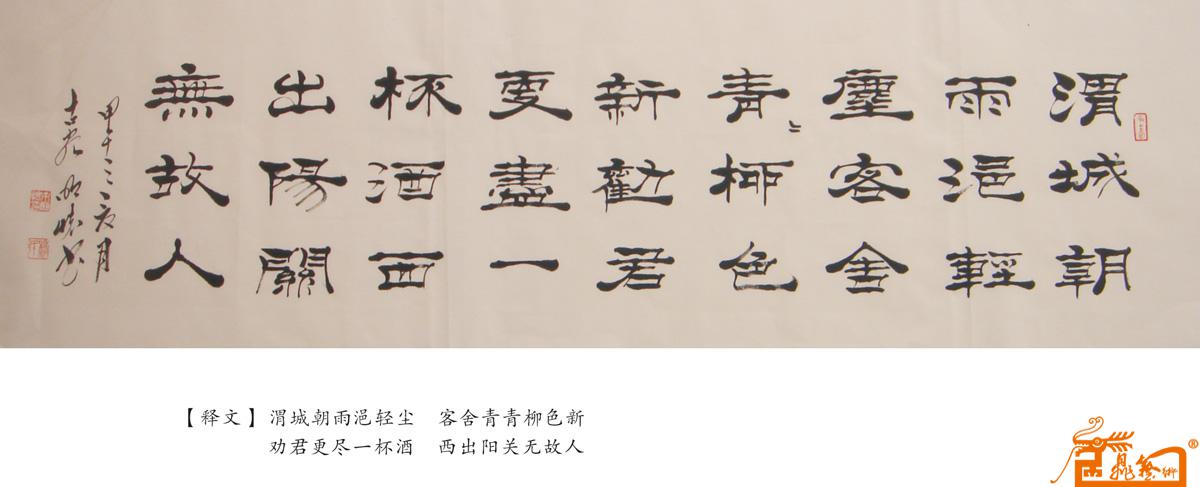 渭城朝
雨浥輕
塵客舍
青〻柳色
新勸君
更盡一
杯酒西
出陽關
無故人
甲午之夜月
【释文】渭城朝雨浥轻尘 客舍青青柳色新
劝君更尽一杯酒 西出阳关无故人